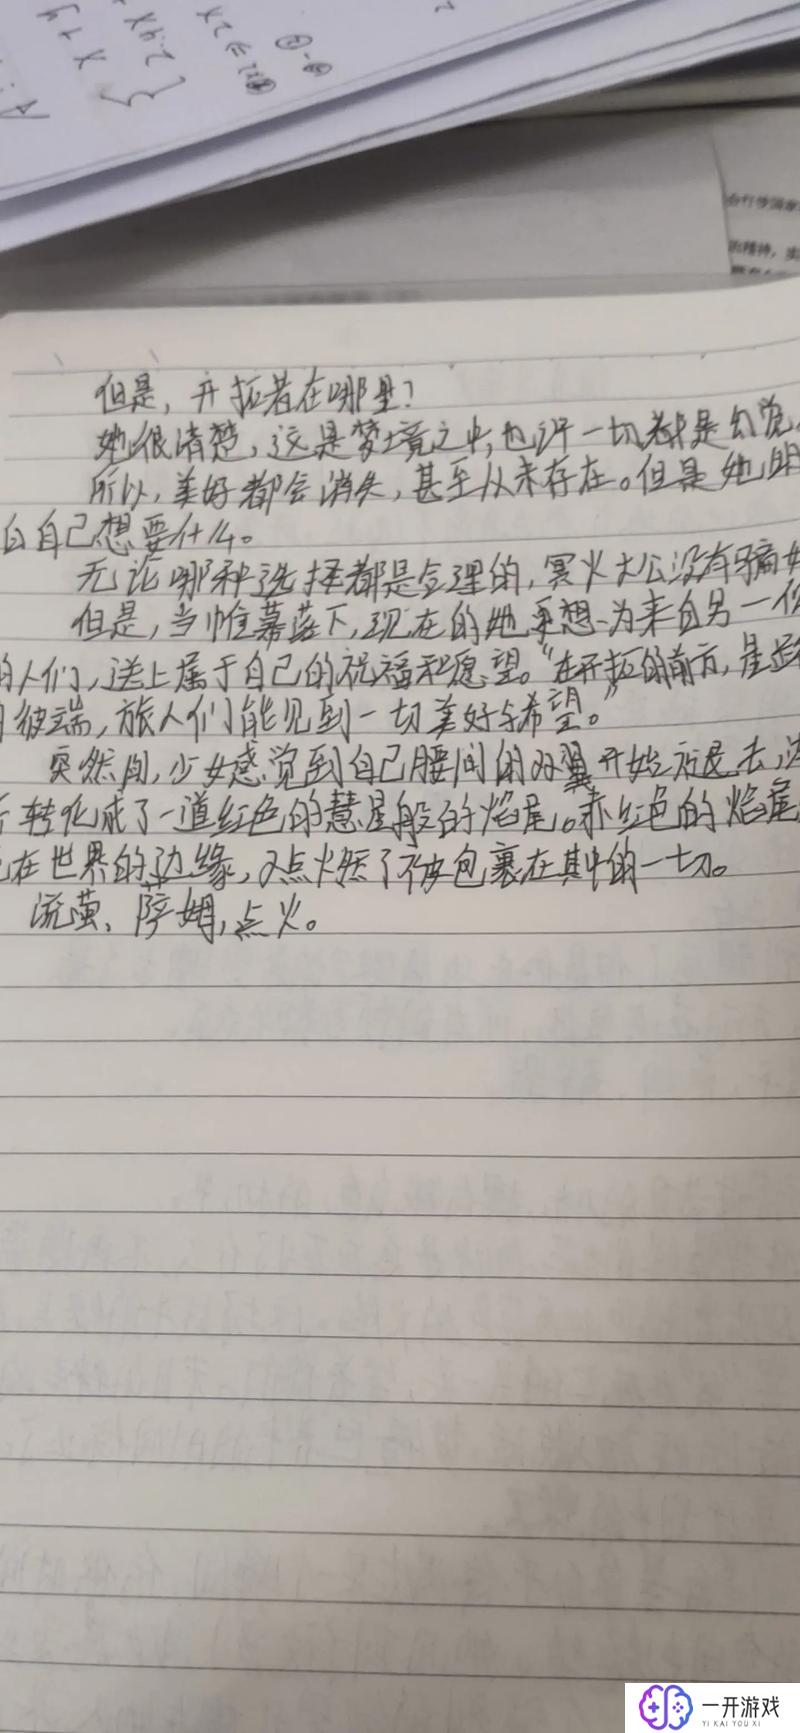 但是，开拓者在哪里？
她很清楚，这是梦境之中，也许一切都是幻觉
所以，美好都会消失，甚至从未存在。但是她明
白自己想要什么。
无论哪种选择都是合理的，冥火大公没有骗她
但是，当帷幕落下，现在的她更想为来自另一
的人们，送上属于自己的祝福和愿望。“在开拓的前方，星
的彼端，旅人们能见到一切美好与希望。”
突然间，少女感觉到自己腰间的双翼开始褪去，
转化成了一道红色的慧星般的焰尾。赤红色的焰尾
在世界的边缘，又点火燃了被包裹在其中的一切。
流萤、萨姆，点火。
一开游戏
YI KAI YOU XI